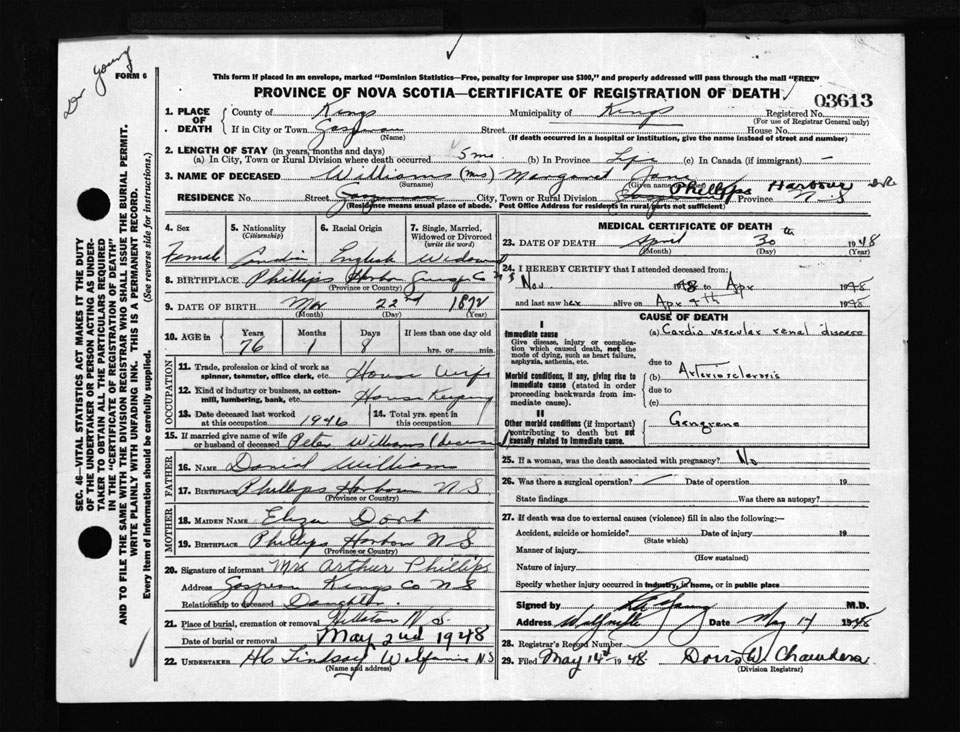 Dr Young
FORM 6
This form if placed in an envelope, marked "Dominion Statistics—Free, penalty for improper use $300," and properly addressed will pass through the mail "FREE"
PROVINCE OF NOVA SCOTIA—CERTIFICATE OF REGISTRATION OF DEATH
03613
1. PLACE OF DEATH County of Kings Municipality of Kings Registered No.
(For use of Registrar General only)
If in City or Town Gaspereau Street House No.
(Name) (If death occurred in a hospital or institution, give the name instead of street and number)
2. LENGTH OF STAY (in years, months and days)
(a) In City, Town or Rural Division where death occurred 5 mo (b) In Province Life (c) In Canada (if immigrant) —
3. NAME OF DECEASED Williams (Mrs) Margaret Jane
(Surname) (Given name)
RESIDENCE No. Street Gaspereau City, Town or Rural Division Phillips Harbour Province N S
(Residence means usual place of abode. Post Office Address for residents in rural parts not sufficient)
4. Sex 5. Nationality 6. Racial Origin 7. Single, Married, Widowed or Divorced
(Citizenship) (write the word)
Female English Widowed
8. BIRTHPLACE Phillips Harbor Co N S
(Province or Country)
9. DATE OF BIRTH Mar 22nd 1872
(Month) (Day) (Year)
10. AGE in Years Months Days If less than one day old
76 1 8 hrs. or min.
OCCUPATION
11. Trade, profession or kind of work as spinner, teamster, office clerk, etc. House Wife
12. Kind of industry or business, as cotton-mill, lumbering, bank, etc. House Keeping
13. Date deceased last worked at this occupation 1946 14. Total yrs. spent in this occupation
15. If married give name of wife or husband of deceased Peter Williams (deceased)
FATHER
16. NAME Daniel Williams
17. BIRTHPLACE Phillips Harbour N S.
(Province or Country)
MOTHER
18. MAIDEN NAME Eliza Dort
19. BIRTHPLACE Phillips Harbor N S
(Province or Country)
20. Signature of informant Mrs Arthur Phillips
Address Gaspereau Kings Co N S
Relationship to deceased Daughter.
21. Place of burial, cremation or removal N. S.
Date of burial or removal May 2nd 1948
22. UNDERTAKER H C Lindsay Wolfville N S
(Name and address)
MEDICAL CERTIFICATE OF DEATH
23. DATE OF DEATH April 30th 1948
(Month) (Day) (Year)
24. I HEREBY CERTIFY that I attended deceased from:
Nov. 1948 to Apr 1948
and last saw her alive on Apr 4th 1948
CAUSE OF DEATH
I
Immediate cause (a) Cardio vascular renal disease
Give disease, injury or complication which caused death, not the mode of dying, such as heart failure, asphyxia, asthenia, etc.
due to
Morbid conditions, if any, giving rise to immediate cause (stated in order proceeding backwards from immediate cause). (b) Arteriosclerosis
due to
(c)
II
Other morbid conditions (if important) contributing to death but not causally related to immediate cause. Gangrene
25. If a woman, was the death associated with pregnancy? No
26. Was there a surgical operation? — Date of operation 19
State findings Was there an autopsy?
27. If death was due to external causes (violence) fill in also the following:—
Accident, suicide or homicide? Date of injury 19
(State which)
Manner of injury
(How sustained)
Nature of injury
Specify whether injury occurred in industry, in home, or in public place
Signed by Young M.D.
Address Wolfville Date May 14 1948
28. Registrar's Record Number
29. Filed May 14th 1948. Doris W Chambers
(Division Registrar)
SEC. 46—VITAL STATISTICS ACT MAKES IT THE DUTY
OF THE UNDERTAKER OR PERSON ACTING AS UNDER-
TAKER TO OBTAIN ALL THE PARTICULARS REQUIRED
IN THE "CERTIFICATE OF REGISTRATION OF DEATH"
AND TO FILE THE SAME WITH THE DIVISION REGISTRAR WHO SHALL ISSUE THE BURIAL PERMIT.
WRITE PLAINLY WITH UNFADING INK. THIS IS A PERMANENT RECORD.
Every item of information should be carefully supplied. (See reverse side for instructions.)